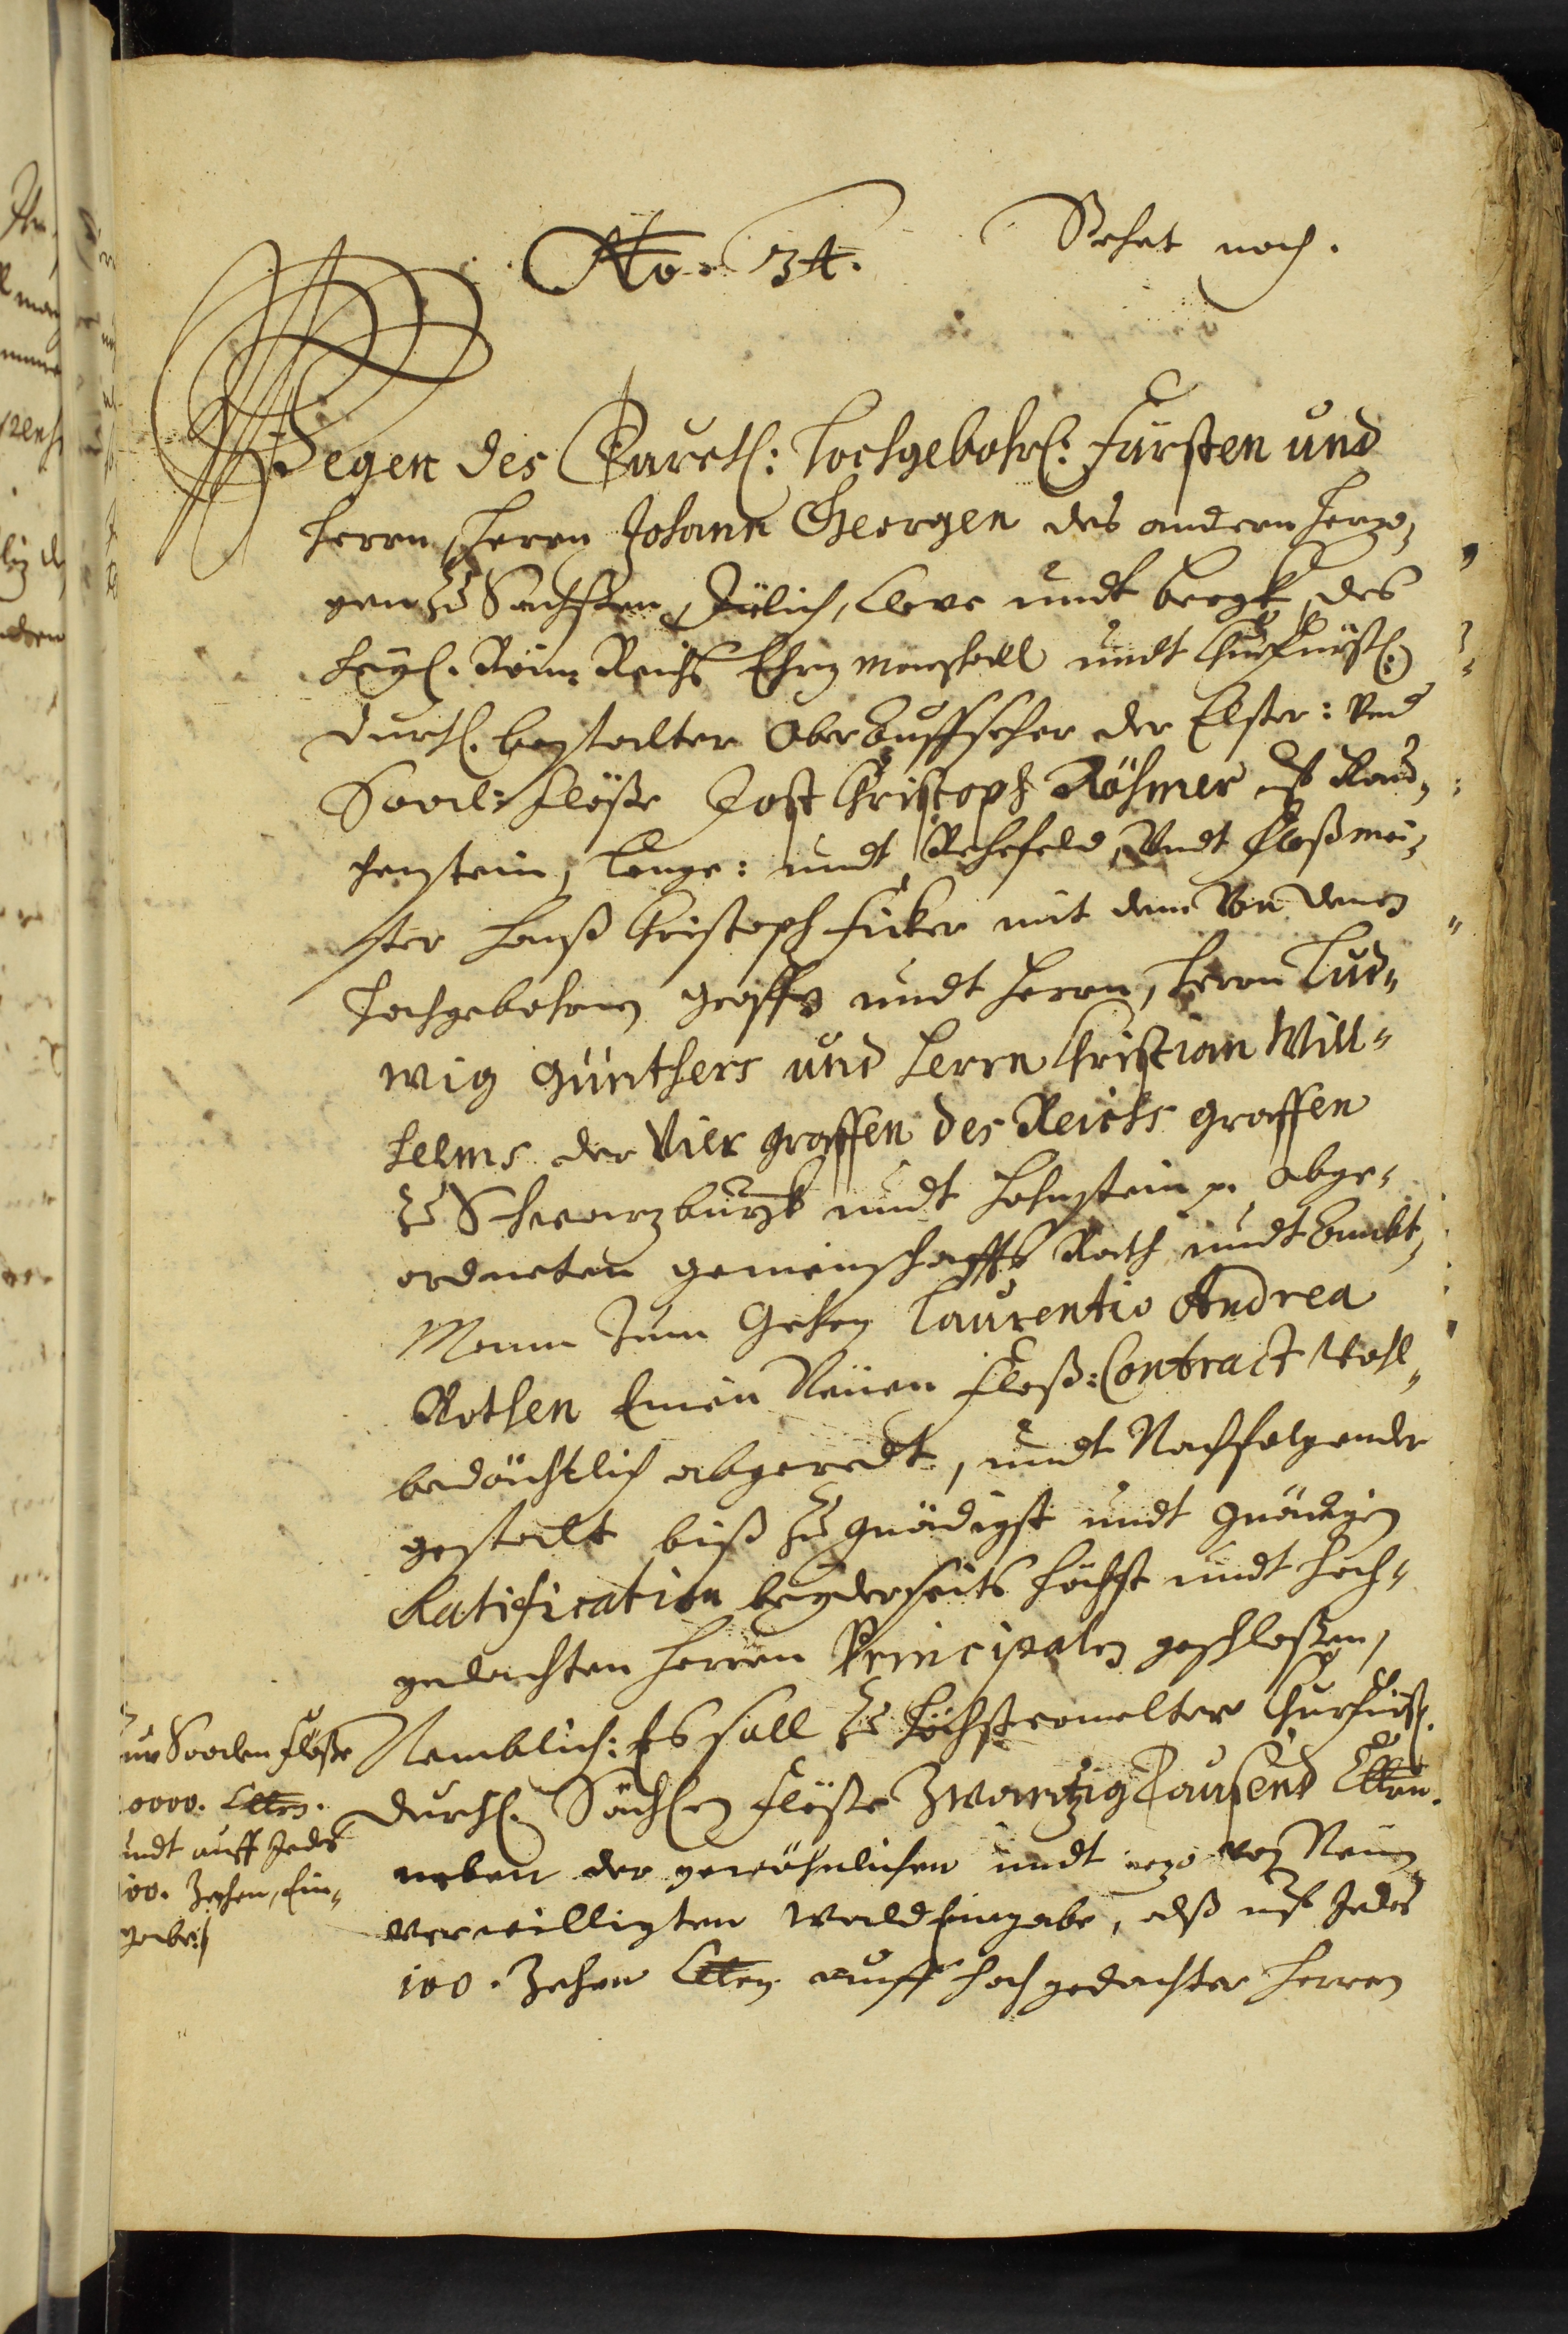 No. 34. Stehet noch.
Wegen des Durchl: Hochgebohr: Fürsten und
Herrn, Herrn Johann Georgen des andern Herzo-
gen zu Sachßen, Jülich, Cleve undt Bergk, des
Heyl. Röm: Reichs Ertz Marschall undt Churfürstl:
Durchl. bestalter Ober Auffseher der Elster: Und
Saal: Flöße Jost Christoph Röhmer uf Rau-
henstein, Lenge: undt Rehefeld, Undt Floßmei-
ster Hanß Christoph Ficker mit dem Von denen
Hochgebohrnen Graffen undt Herrn, Herrn Lud-
wig Günthers und Herrn Christian Will-
helms der Vier Graffen des Reichs Graffen
zu Schwarzburgk undt Hohnstein p. abge-
ordneten gemeinschaffts Rath undt Ambt-
Mann Zum Gehen Laurentio Andrea
Rothen Einen Neüen Floß: Contract Wohl-
bedächtlich abgeredt, undt Nachfolgender
gestalt biß zu gnädigst undt gnädigen
Ratification beyderseits Höchst undt Hoch-
gedachten Herren Principalen geschloßen,
Nemblich: Es soll zu Höchsternelter Churfürstl.
Durchl. Sächsen Flöße Zwantzig Tausend Clttrn.
neben der gewöhnlichen undt iezo von Neüen
verwilligten WaldEingabe, alß uf Jedes
100. Zehen Clttrn auff hochgedachter Herren
Zur Saalen Flöße
0000. Clttrn.
undt auff Jedes
100. Zehen, Ein-
gabe